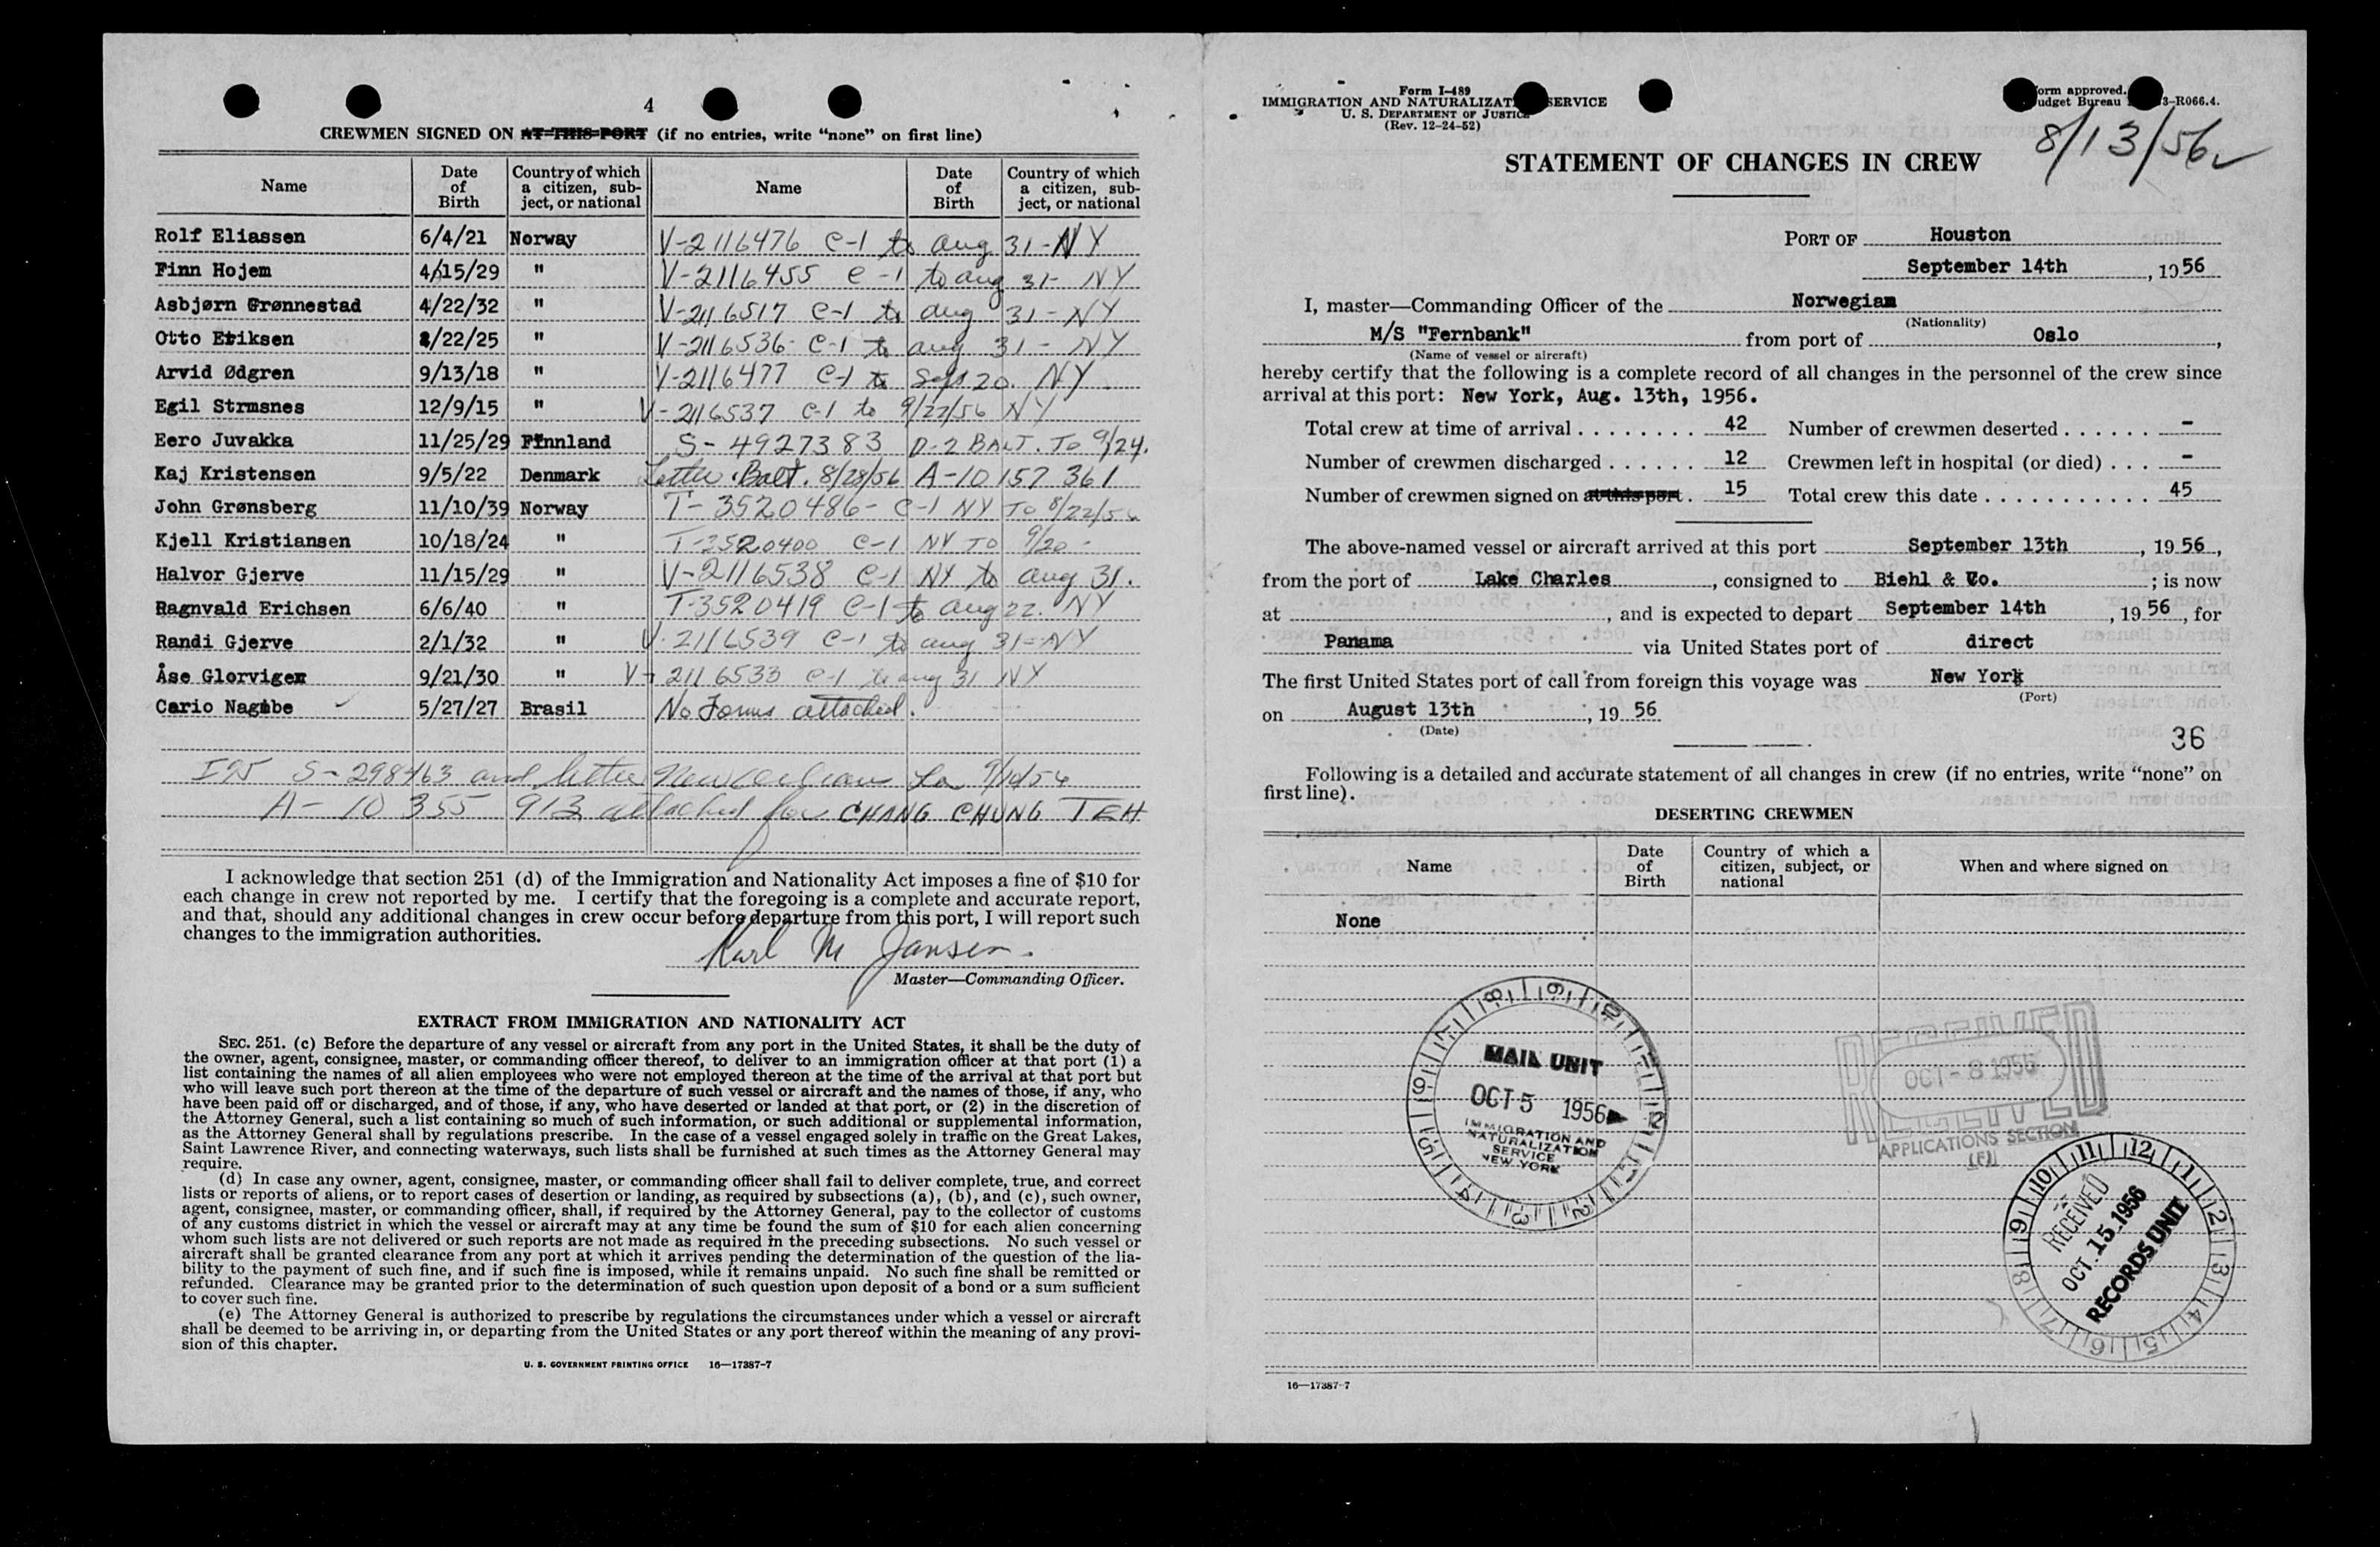 4
CREWMEN SIGNED ON AT THIS PORT (if no entries, write “none” on first line)
Name Date of Birth Country of which a citizen, subject, or national Name Date of Birth Country of which a citizen, subject, or national
Rolf Eliassen 6/4/21 Norway V-2116476 C-1 to Aug 31-NY
Finn Hojem 4/15/29 " V-2116455 C-1 to Aug 31- NY
Asbjørn Grønnestad 4/22/32 " V-2116517 C-1 to Aug 31-NY
Otto Eriksen 8/22/25 " V-2116536- C-1 to Aug 31- NY
Arvid Ødgren 9/13/18 " V-2116477 C-1 to Sept 20. NY
Egil Strmsnes 12/9/15 " V-2116537 C-1 to 9/27/56 NY
Eero Juvakka 11/25/29 Finnland S-4927383 D-2 BALT. To 9/24.
Kaj Kristensen 9/5/22 Denmark Letter Balt. 8/28/56 A-10 157 361
John Grønsberg 11/10/39 Norway T-3520486- C-1 NY To 8/22/56
Kjell Kristiansen 10/18/24 " T-3520400 C-1 NY TO 9/20-
Halvor Gjerve 11/15/29 " V-2116538 C-1 NY to Aug 31.
Ragnvald Erichsen 6/6/40 " T-3520419 C-1 to Aug 22. NY
Randi Gjerve 2/1/32 " V-2116539 C-1 to Aug 31-NY
Åse Glorvigen 9/21/30 " V-2116533 C-1 to Aug 31 NY
Cario Nagibe 5/27/27 Brasil No Forms attached.
S-298463 and letter New Orleans La
A-10 355 913 attached for CHANG CHUNG TEH
I acknowledge that section 251 (d) of the Immigration and Nationality Act imposes a fine of $10 for
each change in crew not reported by me. I certify that the foregoing is a complete and accurate report,
and that, should any additional changes in crew occur before departure from this port, I will report such
changes to the immigration authorities.
Karl M Jansen.
Master—Commanding Officer.
EXTRACT FROM IMMIGRATION AND NATIONALITY ACT
SEC. 251. (c) Before the departure of any vessel or aircraft from any port in the United States, it shall be the duty of
the owner, agent, consignee, master, or commanding officer thereof, to deliver to an immigration officer at that port (1) a
list containing the names of all alien employees who were not employed thereon at the time of the arrival at that port but
who will leave such port thereon at the time of the departure of such vessel or aircraft and the names of those, if any, who
have been paid off or discharged, and of those, if any, who have deserted or landed at that port, or (2) in the discretion of
the Attorney General, such a list containing so much of such information, or such additional or supplemental information,
as the Attorney General shall by regulations prescribe. In the case of a vessel engaged solely in traffic on the Great Lakes,
Saint Lawrence River, and connecting waterways, such lists shall be furnished at such times as the Attorney General may
require.
(d) In case any owner, agent, consignee, master, or commanding officer shall fail to deliver complete, true, and correct
lists or reports of aliens, or to report cases of desertion or landing, as required by subsections (a), (b), and (c), such owner,
agent, consignee, master, or commanding officer, shall, if required by the Attorney General, pay to the collector of customs
of any customs district in which the vessel or aircraft may at any time be found the sum of $10 for each alien concerning
whom such lists are not delivered or such reports are not made as required in the preceding subsections. No such vessel or
aircraft shall be granted clearance from any port at which it arrives pending the determination of the question of the lia-
bility to the payment of such fine, and if such fine is imposed, while it remains unpaid. No such fine shall be remitted or
refunded. Clearance may be granted prior to the determination of such question upon deposit of a bond or a sum sufficient
to cover such fine.
(e) The Attorney General is authorized to prescribe by regulations the circumstances under which a vessel or aircraft
shall be deemed to be arriving in, or departing from the United States or any port thereof within the meaning of any provi-
sion of this chapter.
U. S. GOVERNMENT PRINTING OFFICE 16—17387-7
Form I-489
IMMIGRATION AND NATURALIZAT SERVICE
U. S. DEPARTMENT OF JUSTICE
(Rev. 12-24-52)
orm approved.
udget Bureau 3-R066.4.
8/13/56
STATEMENT OF CHANGES IN CREW
PORT OF Houston
September 14th, 1956
I, master—Commanding Officer of the Norwegian
(Nationality)
M/S "Fernbank" from port of Oslo,
(Name of vessel or aircraft)
hereby certify that the following is a complete record of all changes in the personnel of the crew since
arrival at this port: New York, Aug. 13th, 1956.
Total crew at time of arrival 42 Number of crewmen deserted -
Number of crewmen discharged 12 Crewmen left in hospital (or died) -
Number of crewmen signed on at this port 15 Total crew this date 45
The above-named vessel or aircraft arrived at this port September 13th, 1956,
from the port of Lake Charles, consigned to Biehl & Co.; is now
at , and is expected to depart September 14th, 1956, for
Panama via United States port of direct
The first United States port of call from foreign this voyage was New York
(Port)
on August 13th, 1956
(Date)
36
Following is a detailed and accurate statement of all changes in crew (if no entries, write “none” on
first line).
DESERTING CREWMEN
Name Date of Birth Country of which a citizen, subject, or national When and where signed on
None
MAIL UNIT
OCT 5 1956
IMMIGRATION AND
NATURALIZATION
SERVICE
NEW YORK
RECEIVED
OCT - 8 1956
APPLICATIONS SECTION
RECEIVED
OCT. 15 1956
RECORDS UNIT
16—17387-7